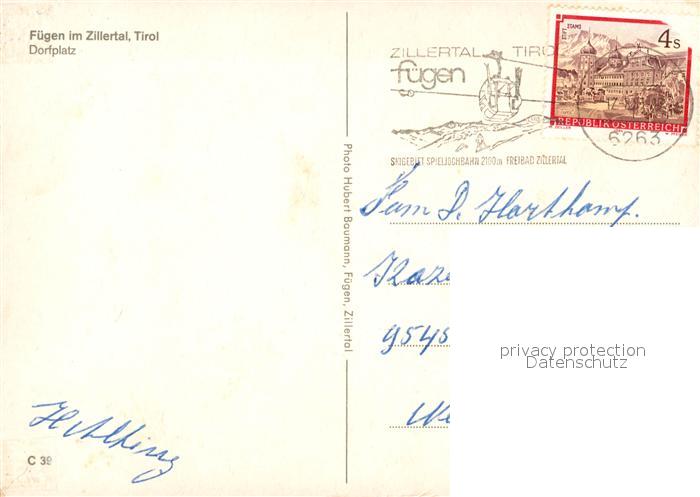 Fügen im Zillertal, Tirol
Dorfplatz
ZILLERTAL TIROL
fügen
SKIGEBIET SPIELJOCHBAHN 2100m FREIBAD ZILLERTAL
STIFT STAMS
4s
REPUBLIK ÖSTERREICH
6263
Photo Hubert Baumann, Fügen, Zillertal
Fam D. Harthamp.
9545
privacy protection
Datenschutz
C 39